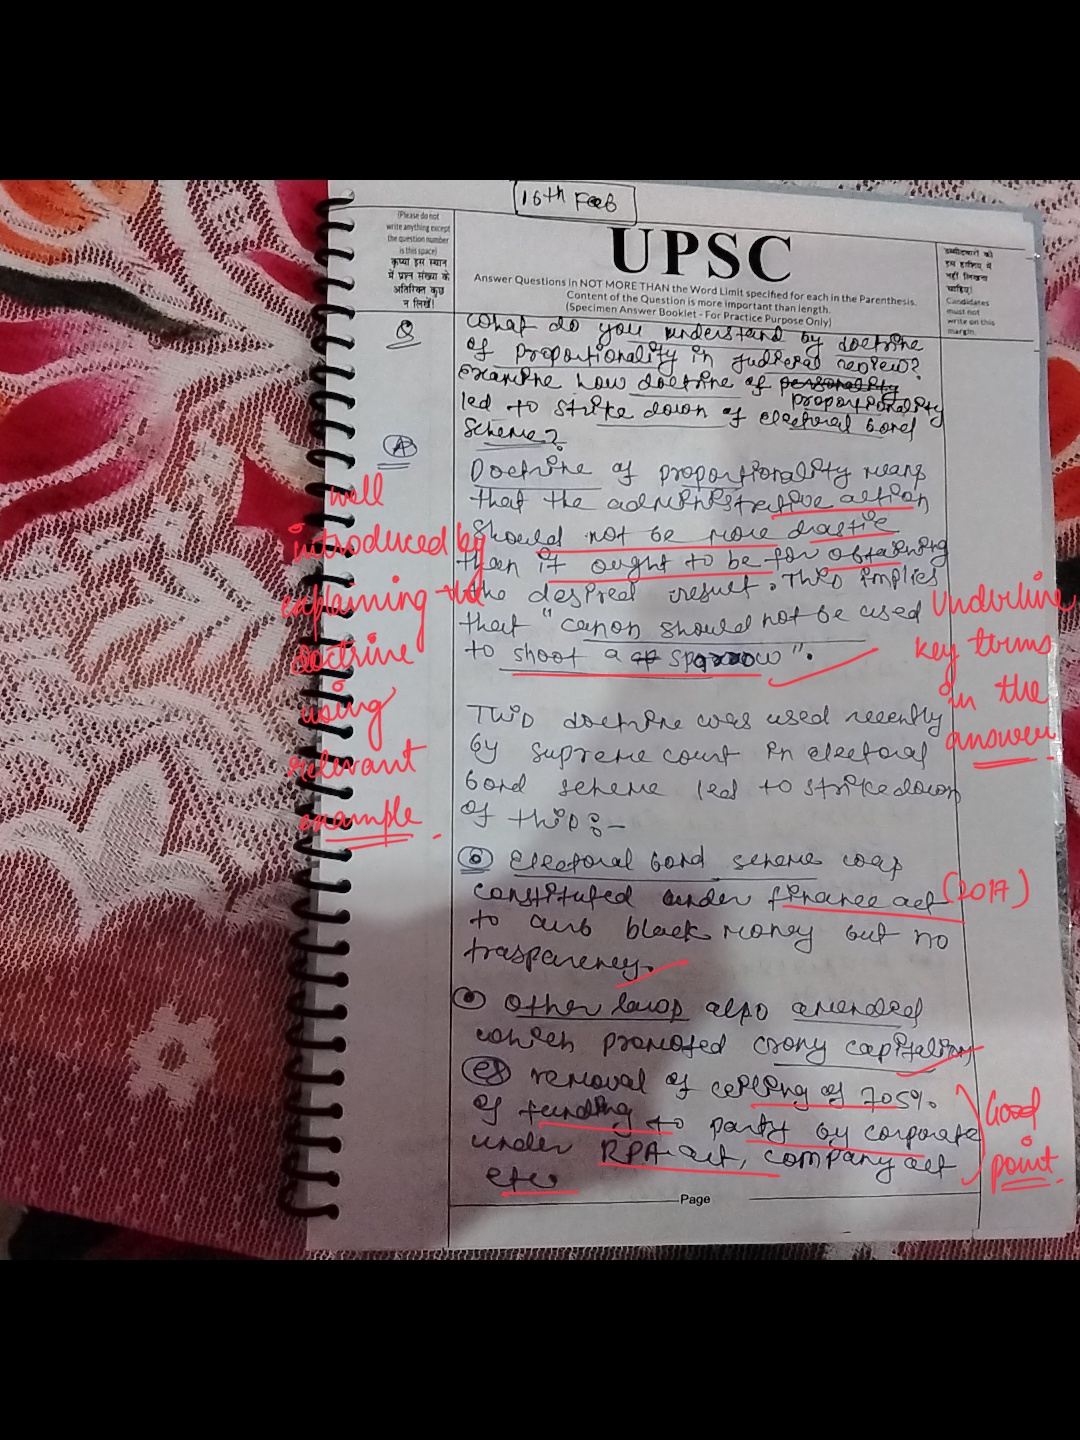 16th Feb
(Please do not
write anything except
the question number
is this space)
कृप्या इस स्थान
में प्रश्न संख्या के
अतिरिक्त कुछ
न लिखें।
UPSC
Answer Questions in NOT MORE THAN the Word Limit specified for each in the Parenthesis.
Content of the Question is more important than length.
(Specimen Answer Booklet - For Practice Purpose Only)
उम्मीदवारों को
इस हाशिए में
नहीं लिखना
चाहिए।
Candidates
must not
write on this
margin.
Q
What do you understand by doctrine
of proportionality in judicial review?
Examine how doctrine of personality
proportionality
led to strike down of electoral bond
scheme?
A
Doctrine of proportionality means
that the administrative action
should not be more drastic
than it ought to be for obtaining
the desired result. This implies
that "canon should not be used
to shoot a sparrow".
well
introduced by
explaining the
doctrine
using
relevant
example.
Underline
key terms
in the
answer.
This doctrine was used recently
by supreme court in electoral
bond scheme led to strikedown
of this:-
Electoral bond scheme was
constituted under finance act (2017)
to curb black money but no
trasparency.
Other laws also amended
which promoted crony capitalism
eg removal of ceiling of 7.5%
of funding to party by corporate
under RPA act, company act
etc
Good
point.
Page